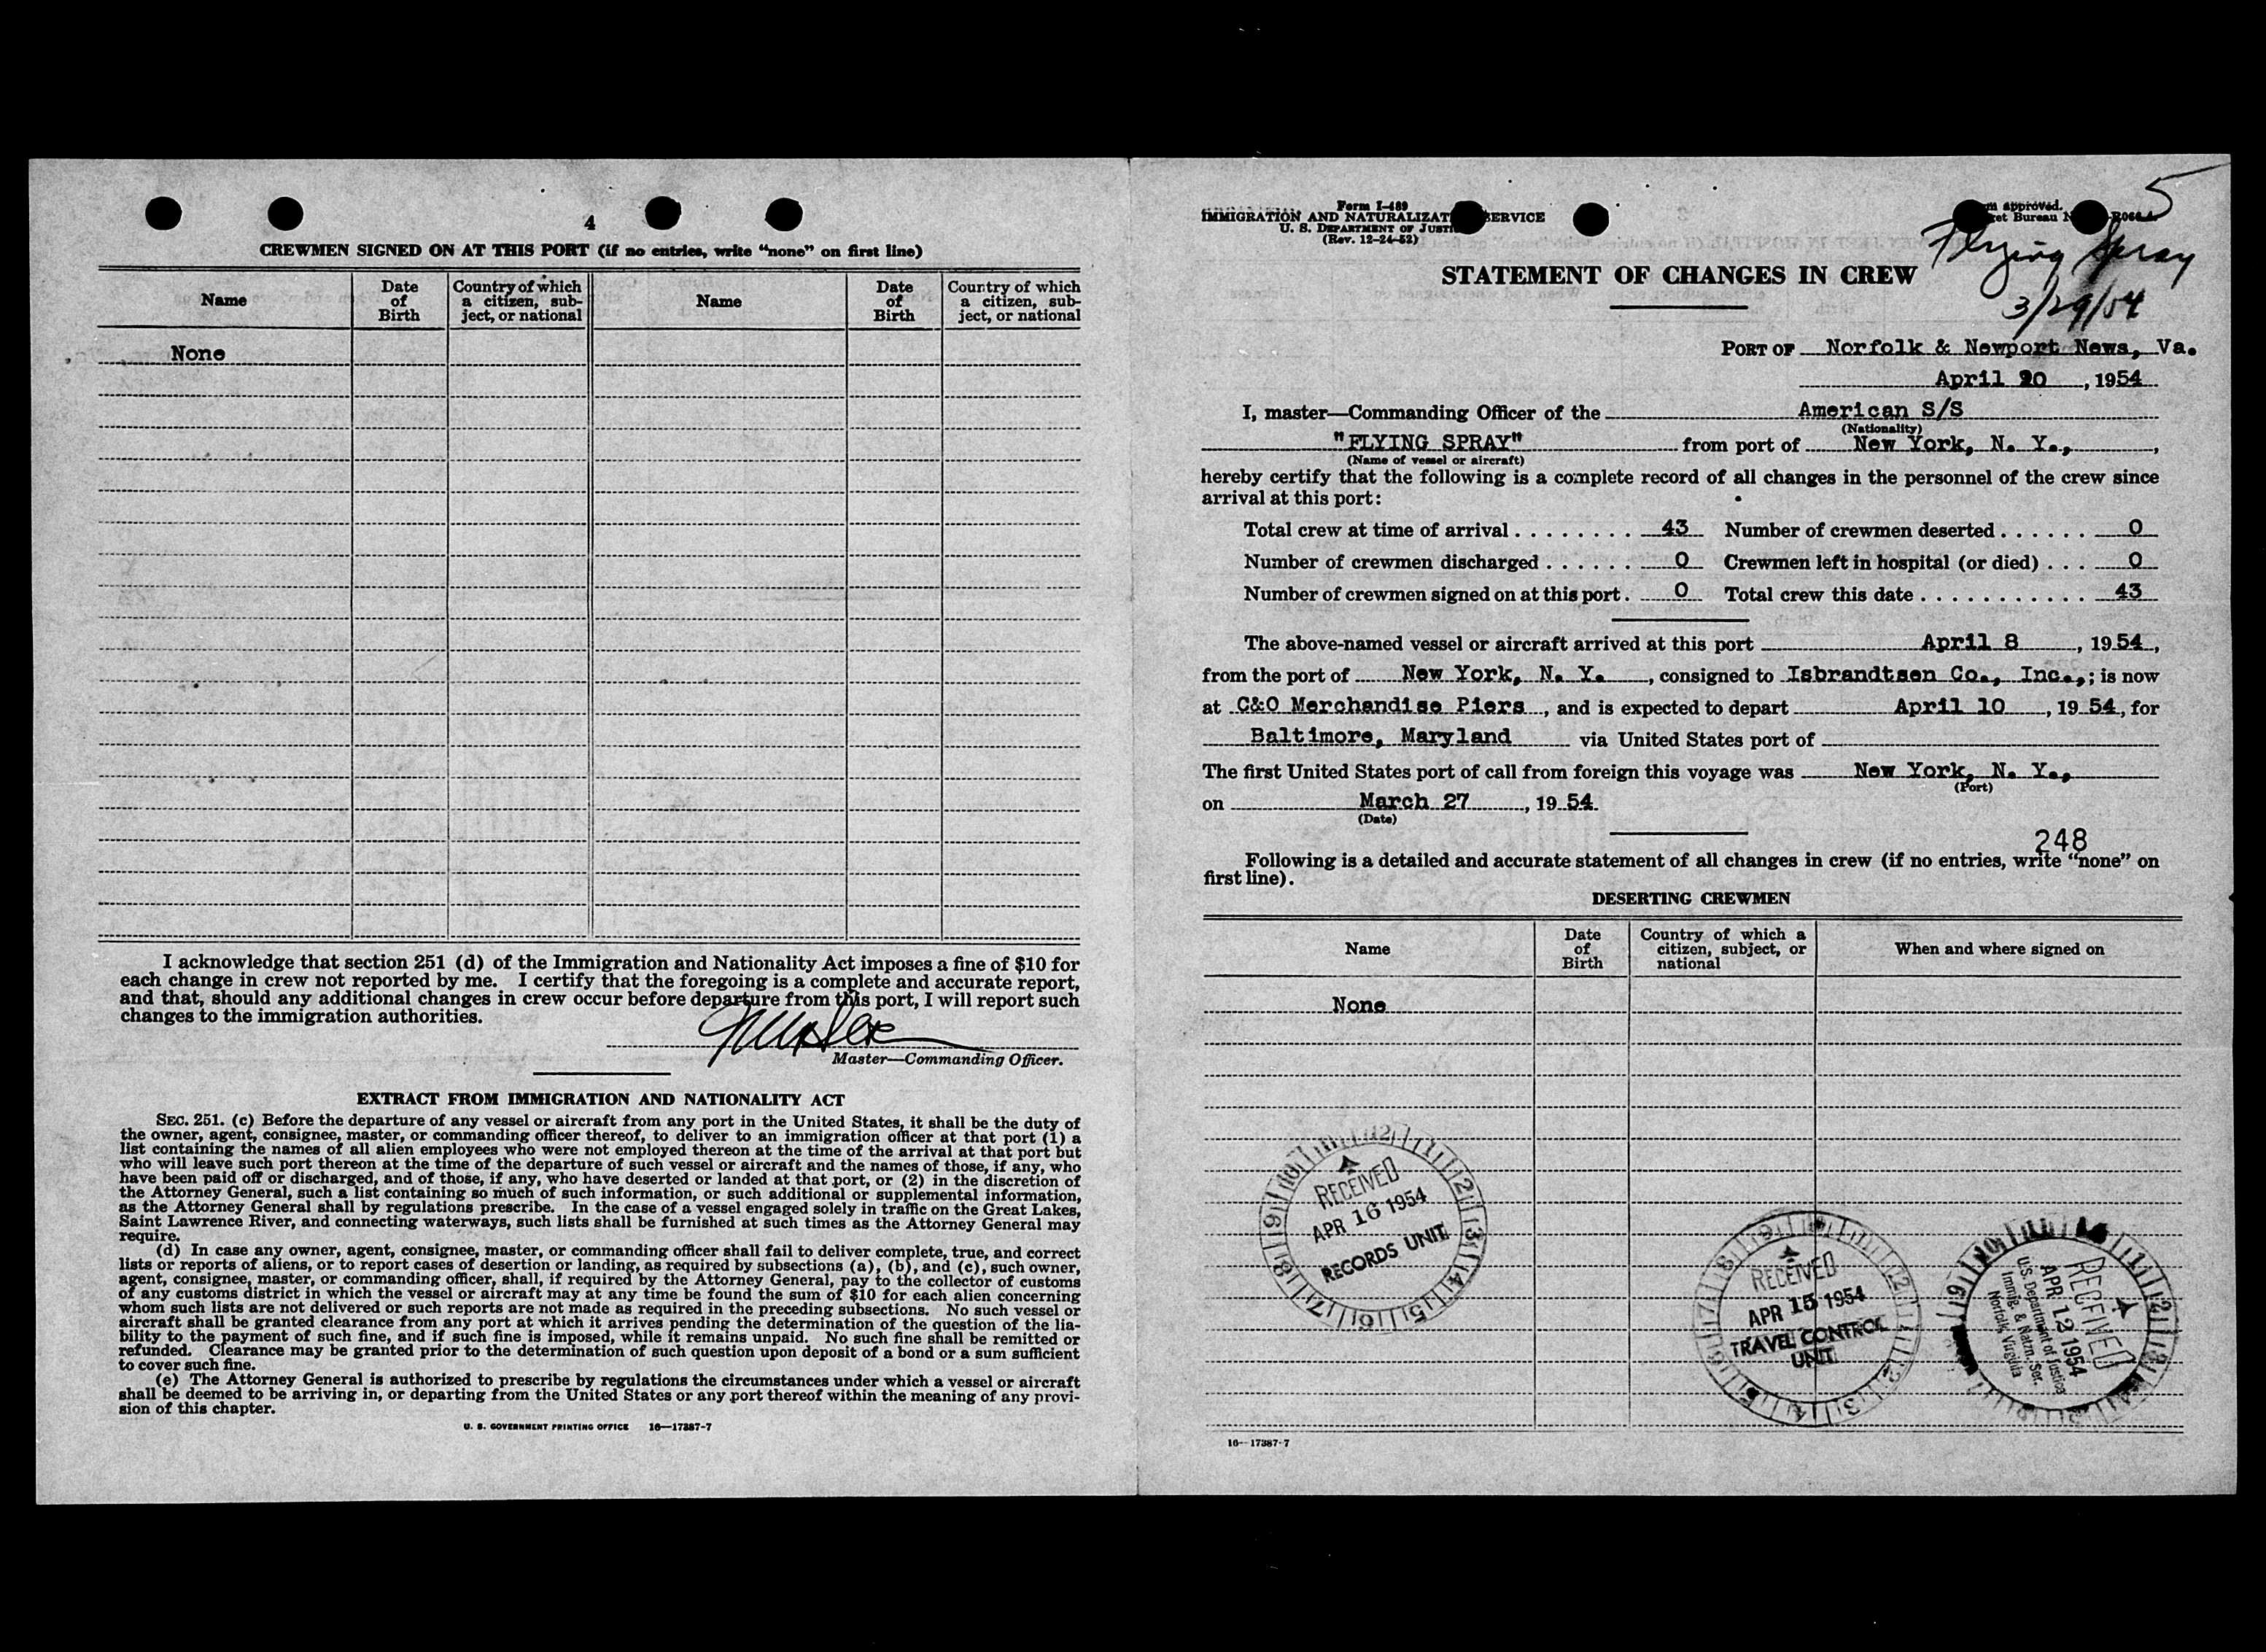 4
CREWMEN SIGNED ON AT THIS PORT (if no entries, write “none” on first line)
Name
Date of Birth
Country of which a citizen, subject, or national
Name
Date of Birth
Country of which a citizen, subject, or national
None
I acknowledge that section 251 (d) of the Immigration and Nationality Act imposes a fine of $10 for
each change in crew not reported by me. I certify that the foregoing is a complete and accurate report,
and that, should any additional changes in crew occur before departure from this port, I will report such
changes to the immigration authorities.
Master—Commanding Officer.
EXTRACT FROM IMMIGRATION AND NATIONALITY ACT
SEC. 251. (c) Before the departure of any vessel or aircraft from any port in the United States, it shall be the duty of
the owner, agent, consignee, master, or commanding officer thereof, to deliver to an immigration officer at that port (1) a
list containing the names of all alien employees who were not employed thereon at the time of the arrival at that port but
who will leave such port thereon at the time of the departure of such vessel or aircraft and the names of those, if any, who
have been paid off or discharged, and of those, if any, who have deserted or landed at that port, or (2) in the discretion of
the Attorney General, such a list containing so much of such information, or such additional or supplemental information,
as the Attorney General shall by regulations prescribe. In the case of a vessel engaged solely in traffic on the Great Lakes,
Saint Lawrence River, and connecting waterways, such lists shall be furnished at such times as the Attorney General may
require.
(d) In case any owner, agent, consignee, master, or commanding officer shall fail to deliver complete, true, and correct
lists or reports of aliens, or to report cases of desertion or landing, as required by subsections (a), (b), and (c), such owner,
agent, consignee, master, or commanding officer, shall, if required by the Attorney General, pay to the collector of customs
of any customs district in which the vessel or aircraft may at any time be found the sum of $10 for each alien concerning
whom such lists are not delivered or such reports are not made as required in the preceding subsections. No such vessel or
aircraft shall be granted clearance from any port at which it arrives pending the determination of the question of the lia-
bility to the payment of such fine, and if such fine is imposed, while it remains unpaid. No such fine shall be remitted or
refunded. Clearance may be granted prior to the determination of such question upon deposit of a bond or a sum sufficient
to cover such fine.
(e) The Attorney General is authorized to prescribe by regulations the circumstances under which a vessel or aircraft
shall be deemed to be arriving in, or departing from the United States or any port thereof within the meaning of any provi-
sion of this chapter.
U. S. GOVERNMENT PRINTING OFFICE 16—17387-7
5
Form I-489
IMMIGRATION AND NATURALIZAT SERVICE
U. S. DEPARTMENT OF JUSTI
(Rev. 12-24-52)
approved.
et Bureau
Flying Spray
3/29/54
STATEMENT OF CHANGES IN CREW
PORT OF Norfolk & Newport News, Va.
April 20, 1954
I, master—Commanding Officer of the American S/S
(Nationality)
"FLYING SPRAY" from port of New York, N. Y.,,
(Name of vessel or aircraft)
hereby certify that the following is a complete record of all changes in the personnel of the crew since
arrival at this port:
Total crew at time of arrival . . . . . . . . 43 Number of crewmen deserted . . . . . . 0
Number of crewmen discharged . . . . . . 0 Crewmen left in hospital (or died) . . . 0
Number of crewmen signed on at this port . 0 Total crew this date . . . . . . . . . . . 43
The above-named vessel or aircraft arrived at this port April 8, 1954,
from the port of New York, N. Y., consigned to Isbrandtsen Co., Inc.,; is now
at C&O Merchandise Piers, and is expected to depart April 10, 1954, for
Baltimore, Maryland via United States port of
The first United States port of call from foreign this voyage was New York, N. Y.,
(Port)
on March 27, 1954
(Date)
248
Following is a detailed and accurate statement of all changes in crew (if no entries, write “none” on
first line).
DESERTING CREWMEN
Name
Date of Birth
Country of which a citizen, subject, or national
When and where signed on
None
RECEIVED
APR 16 1954
RECORDS UNIT
RECEIVED
APR 15 1954
TRAVEL CONTROL
UNIT
RECEIVED
APR 12 1954
U.S. Department of Justice
Immig. & Natzn. Ser.
Norfolk, Virginia
16—17387-7